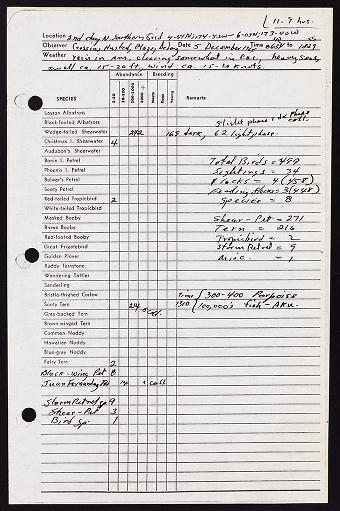 11.9 hrs.
Location 3rd day N. Southern Grid
Observer Crossin, Husted, Date 5 December Time
Weather Rain in am, clearing somewhat in P.M., heavy seas,
swell ca. 15-20 ft., wind ca. 15-20 knots
Abundance Breeding
SPECIES Remarks
Laysan Albatross
Black-footed Albatross slight phase
Wedge-tailed Shearwater 169 dark, 62 light phase
Christmas I. Shearwater 4
Audubon's Shearwater
Bonin I. Petrel Total Birds =
Phoenix I. Petrel Sightings = 34
Bulwer's Petrel Flocks = 4 (458)
Sooty Petrel Feeding flocks = 3 (448)
Red-tailed Tropicbird 2 Species = 8
White-tailed Tropicbird
Masked Booby Shear-Pet = 271
Brown Booby Tern = 216
Red-footed Booby Tropicbird = 2
Great Frigatebird Storm Petrel = 9
Golden Plover Misc. = 1
Ruddy Turnstone
Wandering Tattler
Sanderling
Bristle-thighed Curlew Time 300-400 Porpoise
Sooty Tern 214 1310 100,000's fish - AKU.
Grey-backed Tern
Brown-winged Tern
Common Noddy
Hawaiian Noddy
Blue-grey Noddy
Fairy Tern 2
Black-wing Pet 8
Juan Fernandez Pet 14 coll
Storm Petrel sp. 9
Shear-Pet 3
Bird sp. 1